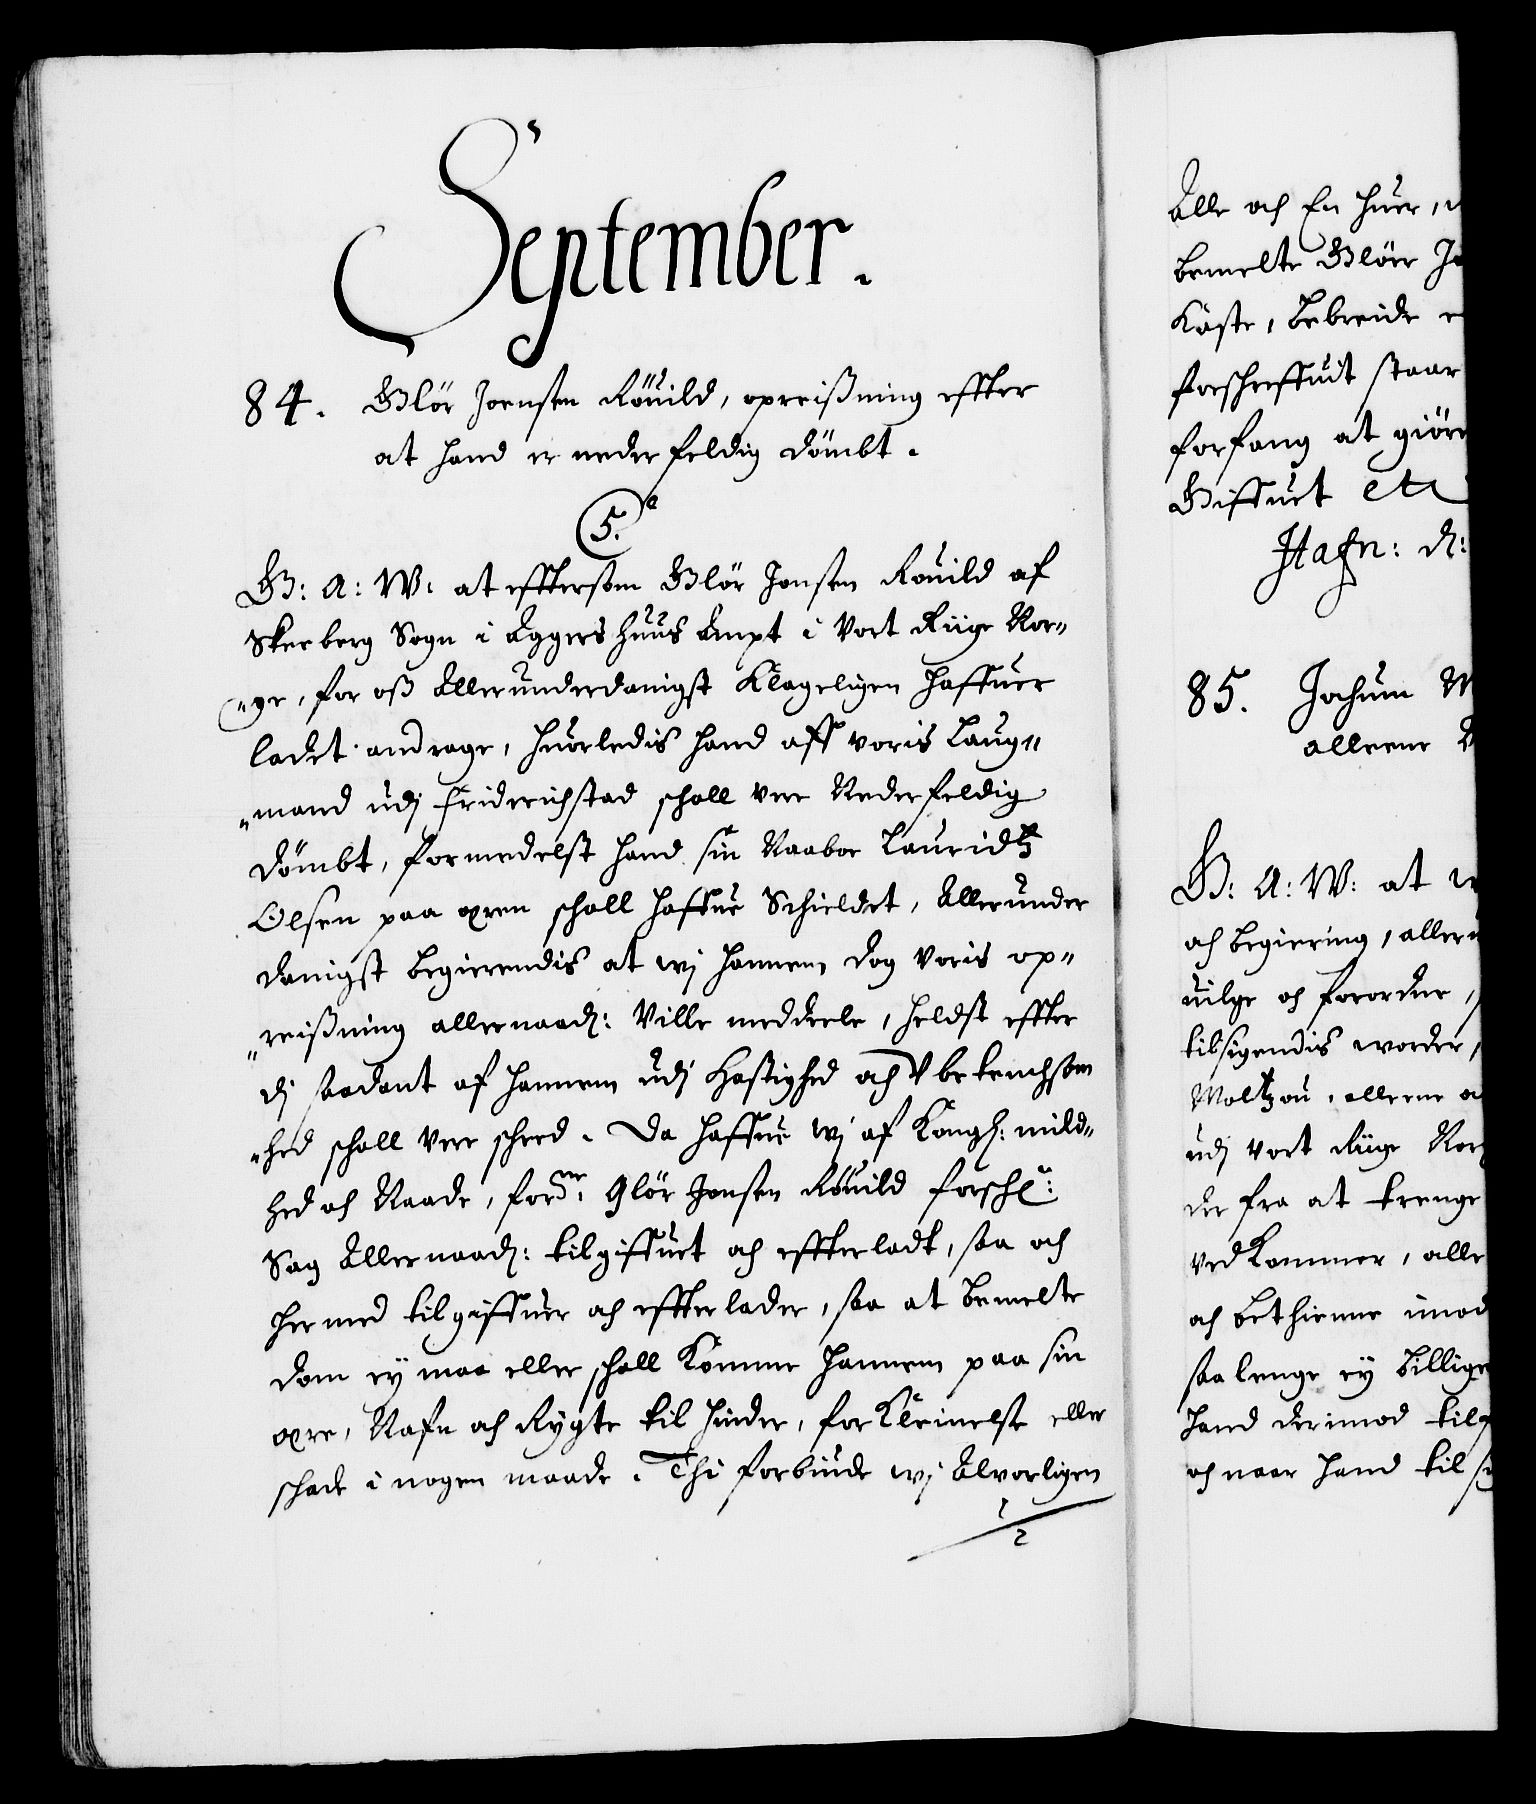 September.
84. Glör Joensen Röuild, opreißning effter
at hand er nederfeldig dömbt.
5.
G: A: W: at effterson Glör Jonsen Rouild af
Skeeberg Sogn i Aggershuus Ampt i Vort Riige Nor„
„ge, for oß Allerunderdanigst Klageligen haffuer
ladet andrage, huorledis hand aff voris Laug„
„mand udj Friderichstad schall vere Nederfeldig
dömbt, formedelst hand sin Naaboe Lauridtz
Olsen paa æren schall haffue Schieldet, Allerunder
danigst begierendis at wj hannem dog voris op„
„reißning allernaad: Ville meddeele, heldst effter
dj saadant af hannem udj Hastighed och Vbetenchsom
„hed schall vere scheed. Da haffue wj af Kongl: mild„
hed och Naade, forne: Glör Jonsen Röuild forschr:
Sag Allernaad: tilgiffuet och effterladt, saa och
hermed tilgiffuer och effterlader, saa at bemelte
dom ey maa eller schall Komme hannem paa sin
ære, Nafn och Rygte til hinder, forKleinelse eller
schade i nogen maade. Thi forbiude wj Alvorligen
Alle och En huer,
bemelte Glöer Jo
Kaste, bebreide e
forschreffuit staar
forfang at giöre
Giffuet etc
Hafn: d:
85. Jochum M
alleene
G: A: W: at
och begiering, aller
vilge och forordne,
tilsigendis worder,
Moltzou, alleene
udj Vort Riige Nor
der fra at trenge
vedKommer, alle
och bethienne imod
saa lenge ey billige
hand derimod til
och naar hand til